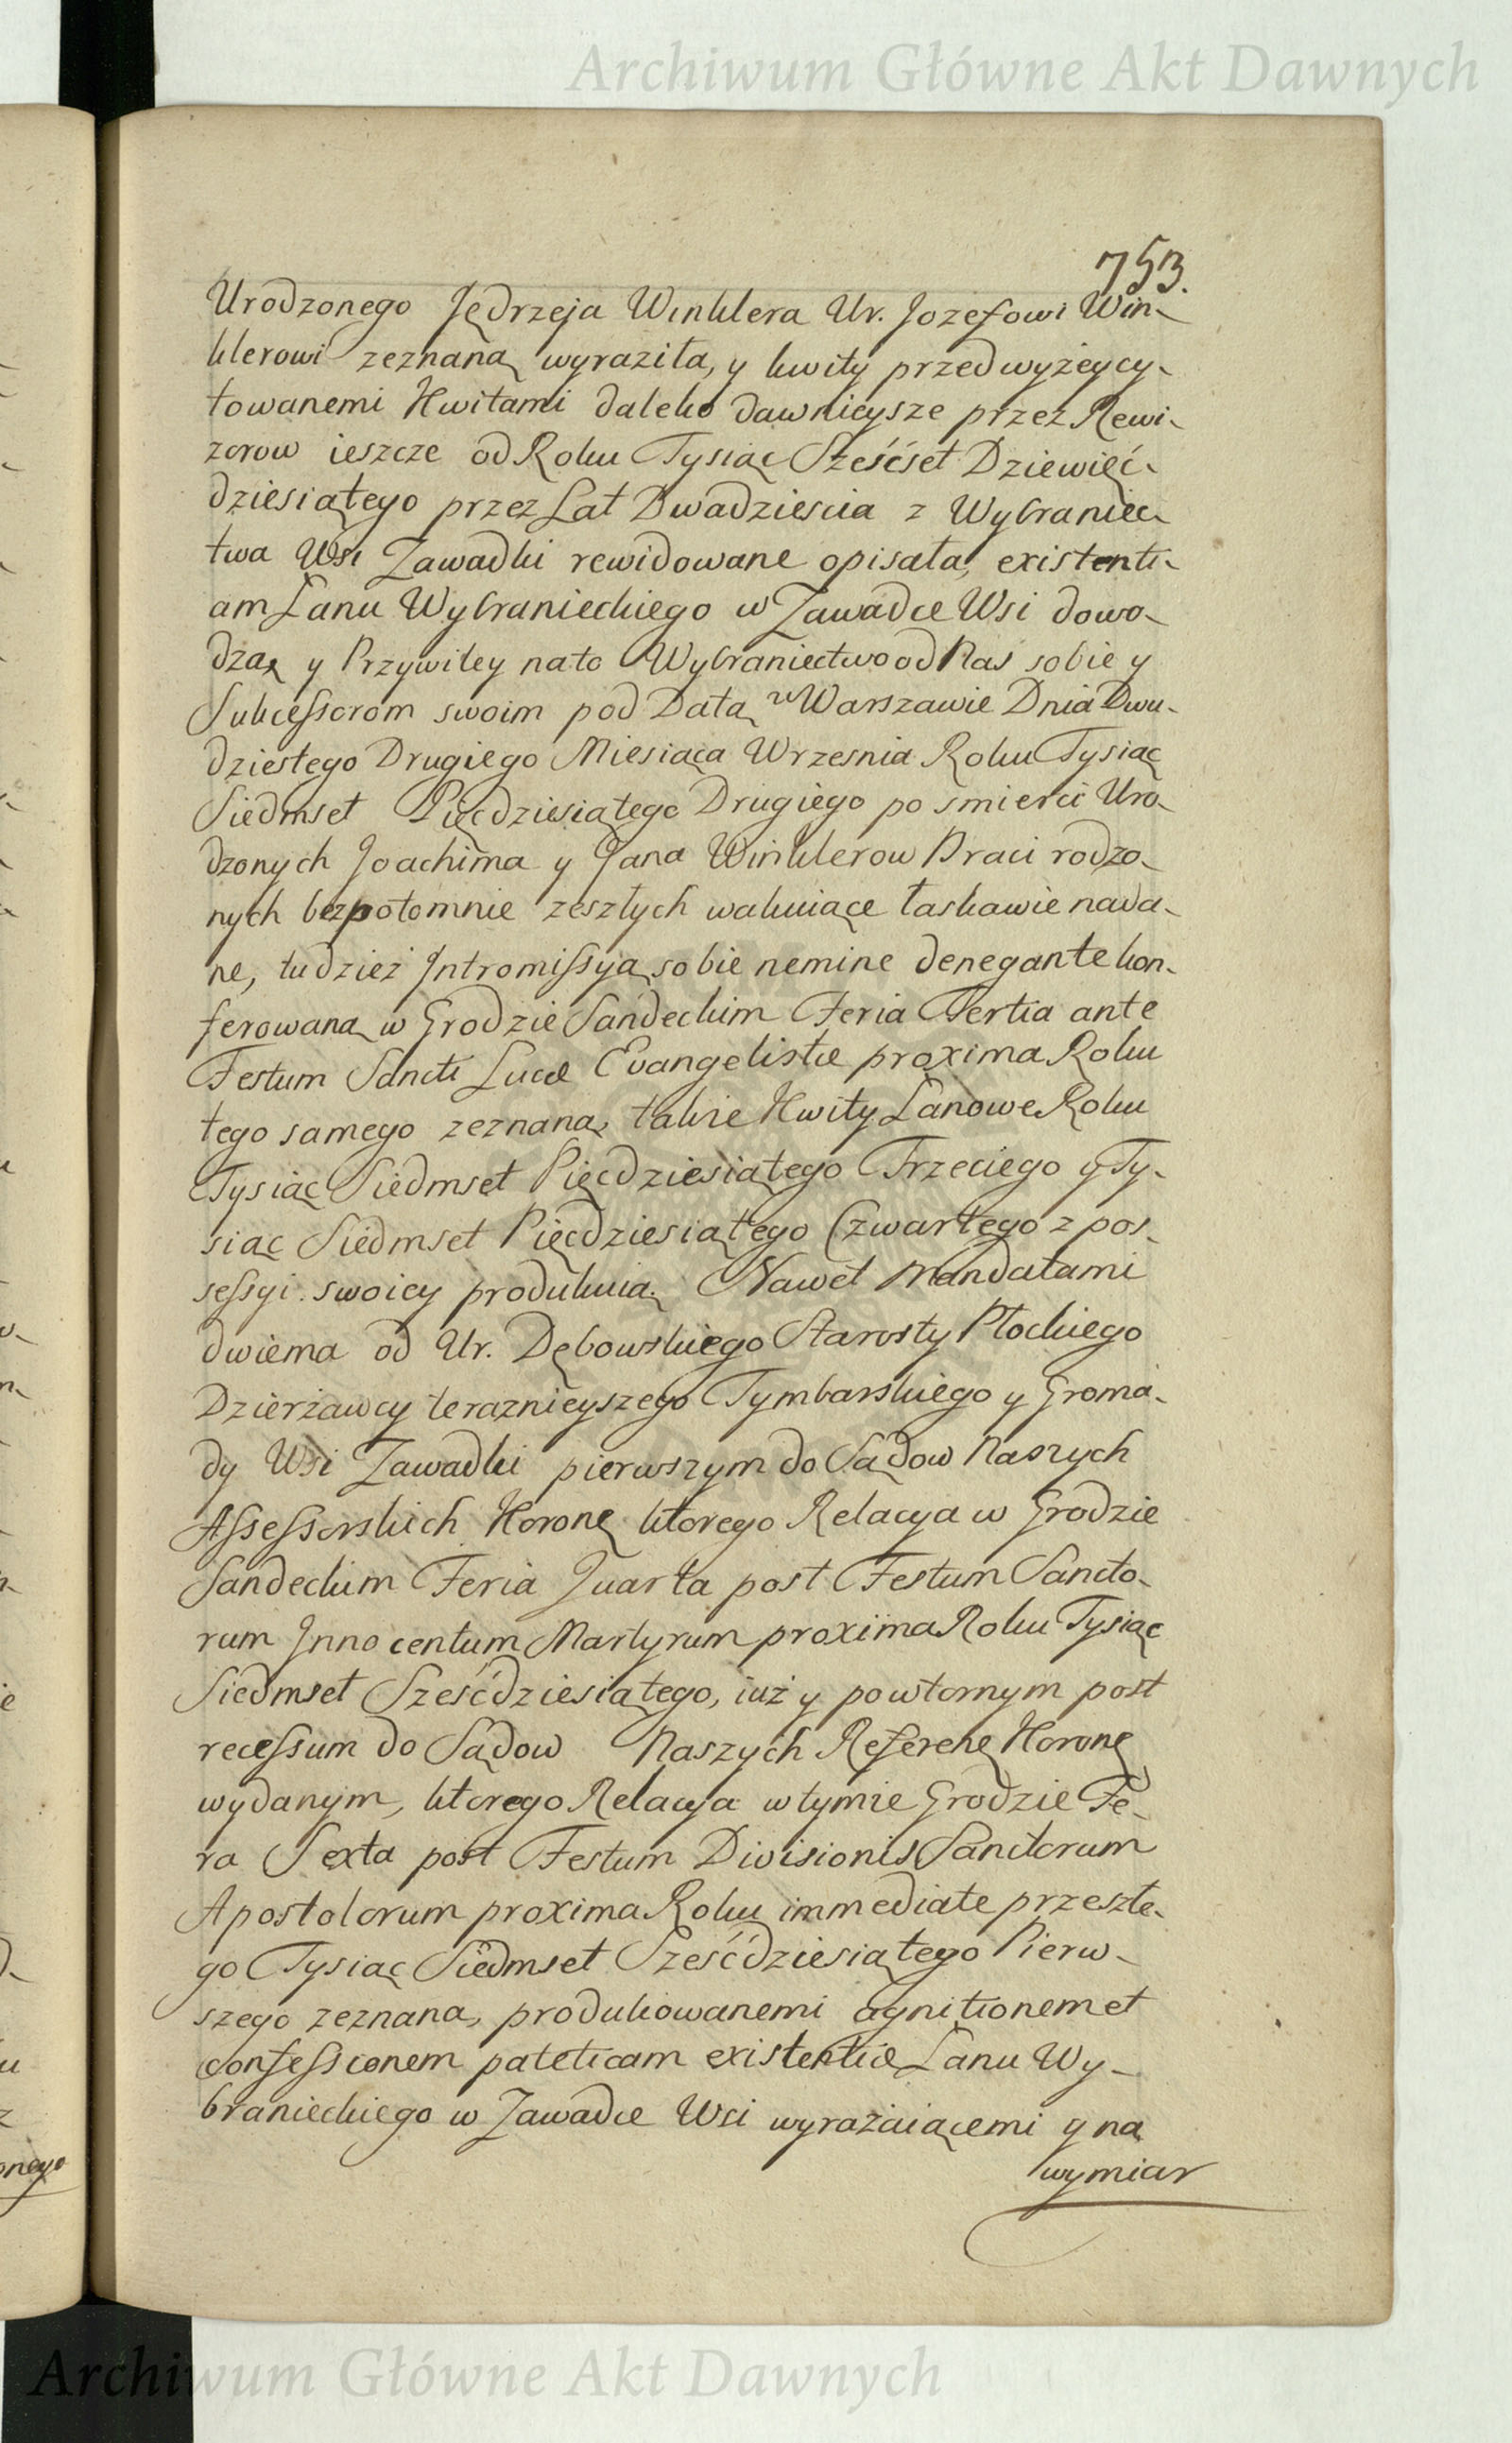 Archiwum Główne Akt Dawnych
753.
Urodzonego Jędrzeja Winklera Ur. Jozefowi Win-
klerowi zeznaną wyraziła, y kwity przed wyżey cy-
towanemi Kwitami daleko dawnieysze przez Rewi-
zorow ieszcze od Roku Tysiąc Sześćset Dziewięć-
dziesiątego przez Lat Dwadziescia z Wybraniec-
twa Wsi Zawadki rewidowane opisała, existenti-
am Łanu Wybranieckiego w Zawadce Wsi dowo-
dzą, y Przywiley na to Wybraniectwo od Nas sobie y
Sukcessorom swoim pod Datą w Warszawie Dnia Dwu-
dziestego Drugiego Miesiąca Wrzesnia Roku Tysiąc
Siedmset Pięcdziesiątego Drugiego po smierci Uro-
dzonych Joachima y Jana Winklerow Braci rodzo-
nych bezpotomnie zeszłych wakuiące łaskawie nada-
ne, tudzież Intromissyą sobie nemine denegante kon-
ferowaną w Grodzie Sandeckim Feria Tertia ante
Festum Sancti Lucæ Evangelistæ proxima Roku
tego samego zeznaną, takie Kwity Łanowe Roku
Tysiąc Siedmset Pięcdziesiątego Trzeciego y Ty-
siąc Siedmset Pięcdziesiątego Czwartego z pos-
sessyi swoiey produkuią. Nawet Mandatami
dwiema od Ur. Dębowskiego Starosty Płockiego
Dzierżawcy teraznieyszego Tymbarskiego y Groma-
dy Wsi Zawadki pierwszym do Sądow Naszych
Assessorskich Koronę ktorego Relacya w Grodzie
Sandeckim Feria Quarta post Festum Sancto-
rum Innocentum Martyrum proxima Roku Tysiąc
Siedmset Sześćdziesiątego, iuż y powtornym post
recessum do Sądow Naszych Referenę Koronę
wydanym, ktorego Relacya w tymie Grodzie Fe-
ra Sexta post Festum Divisionis Sanctorum
Apostolorum proxima Roku immediate przeszłe-
go Tysiąc Siedmset Sześćdziesiątego Pierw-
szego zeznana, produkowanemi agnitionem et
confessionem pateticam existentiæ Łanu Wy-
branieckiego w Zawadce Wsi wyrażaiącemi y na
wymiar
Archiwum Główne Akt Dawnych